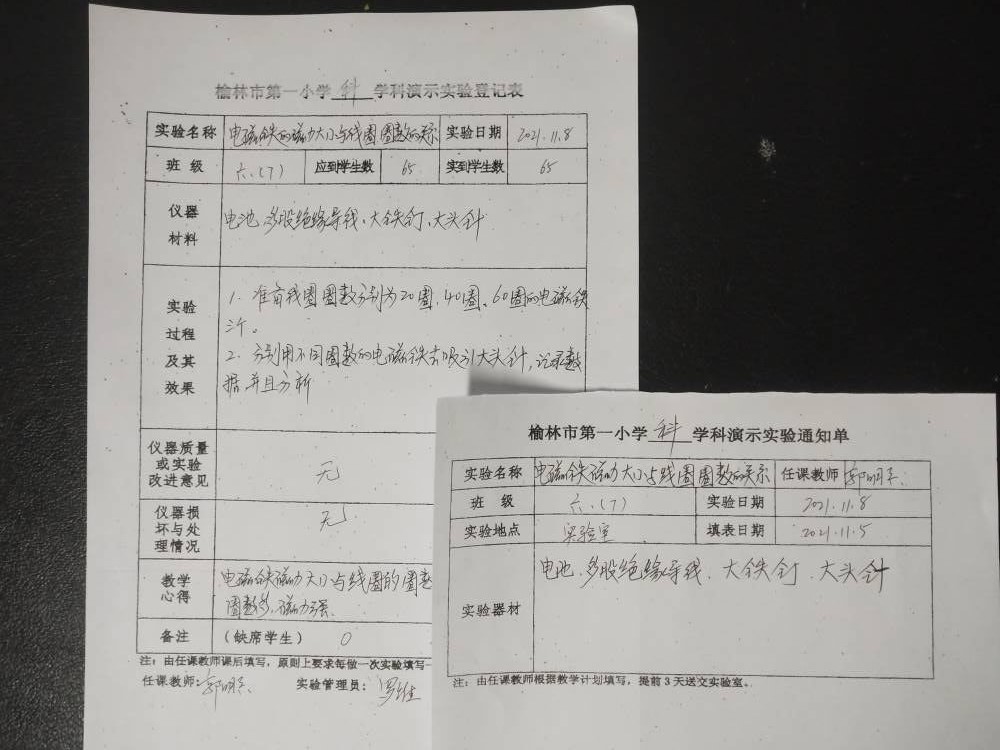 榆林市第一小学 科 学科演示实验登记表
实验名称 电磁铁的磁力大小与线圈圈数的关系 实验日期 2021.11.8
班 级 六.(7) 应到学生数 65 实到学生数 65
仪器
材料
电池、多股绝缘导线、大铁钉、大头针
实验
过程
及其
效果
1. 准备线圈圈数分别为20圈、40圈、60圈的电磁铁
三个。
2. 分别用不同圈数的电磁铁去吸引大头针,记录数
据并且分析
仪器质量
或实验
改进意见
无
仪器损
坏与处
理情况
无
教学
心得
电磁铁磁力大小与线圈的圈数
圈数多,磁力强.
备注 (缺席学生) 0
注:由任课教师课后填写,原则上要求每做一次实验填写一
任课教师: 郭明 实验管理员: 罗维
榆林市第一小学 科 学科演示实验通知单
实验名称 电磁铁磁力大小与线圈圈数的关系 任课教师 郭明
班 级 六.(7) 实验日期 2021.11.8
实验地点 实验室 填表日期 2021.11.5
实验器材
电池、多股绝缘导线、大铁钉、大头针
注:由任课教师根据教学计划填写,提前3天送交实验室。